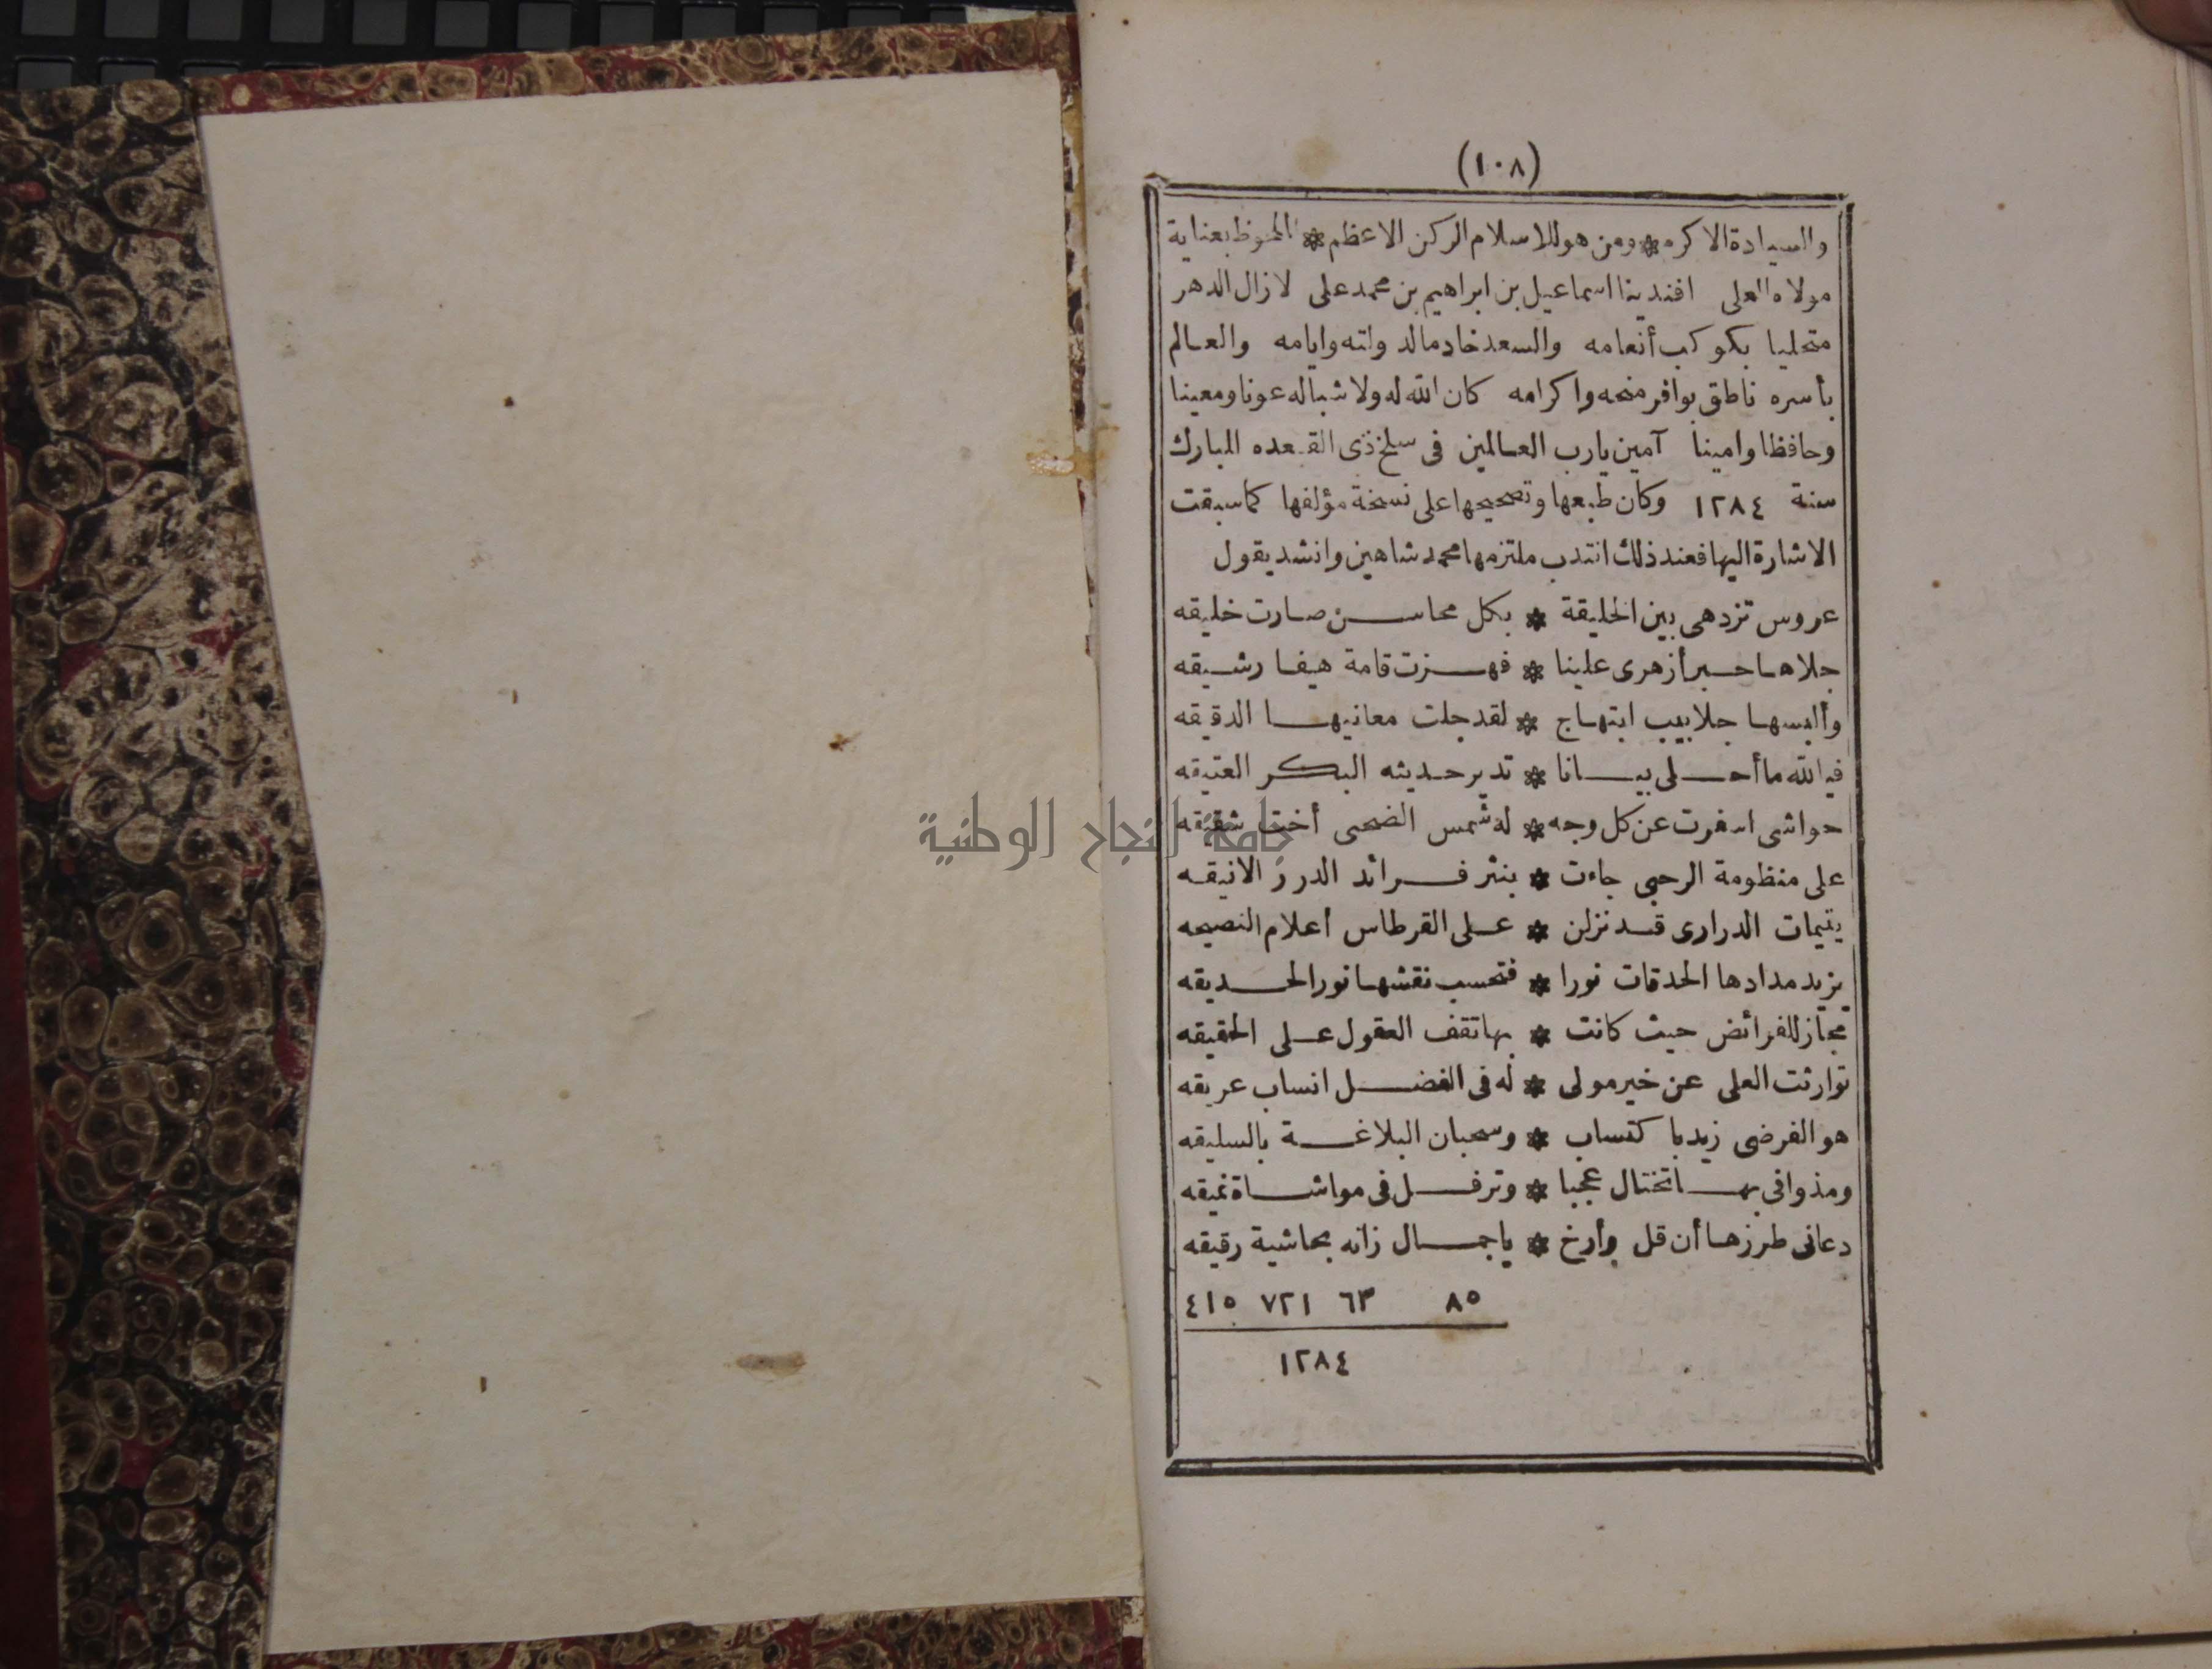 (١٠٨)
والسيادة الاكرم * ومن هو للاسلام الركن الاعظم * الملحوظ بعناية
مولاه العلى افندينا اسماعيل بن ابراهيم بن محمد على لازال الدهر
متحليا بكوكب أنعامه والسعد خادما لدولته وايامه والعالم
بأسره ناطق بوافر منحه واكرامه كان الله له ولاشباله عونا ومعينا
وحافظا وامينا آمين يارب العالمين فى سلخ ذى القعده المبارك
سنة ١٢٨٤ وكان طبعها وتصحيحها على نسخة مؤلفها كما سبقت
الاشارة اليها فعند ذلك انتدب ملتزمها محمد شاهين وانشد يقول
عروس تزدهى بين الخليقة * بكل محاسن صارت خليقه
جلاها حبر أزهرى علينا * فهزت قامة هيفا رشيقه
وألبسها جلابيب ابتهاج * لقد جلت معانيها الدقيقه
فيالله ما أحلى بيانا * تدير حديثه البكر العتيقه
حواشى اسفرت عن كل وجه * له شمس الضحى أخت شقيقه
على منظومة الرحبى جاءت * بنثر فرائد الدرر الانيقه
يتيمات الدرارى قد نزلن * على القرطاس أعلام النصيحه
يزيد مدادها الحدقات نورا * فتحسب نقشها نور الحديقه
مجاز للفرائض حيث كانت * بها تقف العقول على الحقيقه
توارثت العلى عن خير مولى * له فى الفضل انساب عريقه
هو الفرضى زيد باكتساب * وسحبان البلاغة بالسليقه
ومذ وافى بها تختال عجبا * وترفل فى مواشاة نميقه
دعانى طرزها أن قل وأرخ * ياجمال زانه بحاشية رقيقه
٨٥ ٦٣ ٧٢١ ٤١٥
١٢٨٤
جامعة النجاح الوطنية